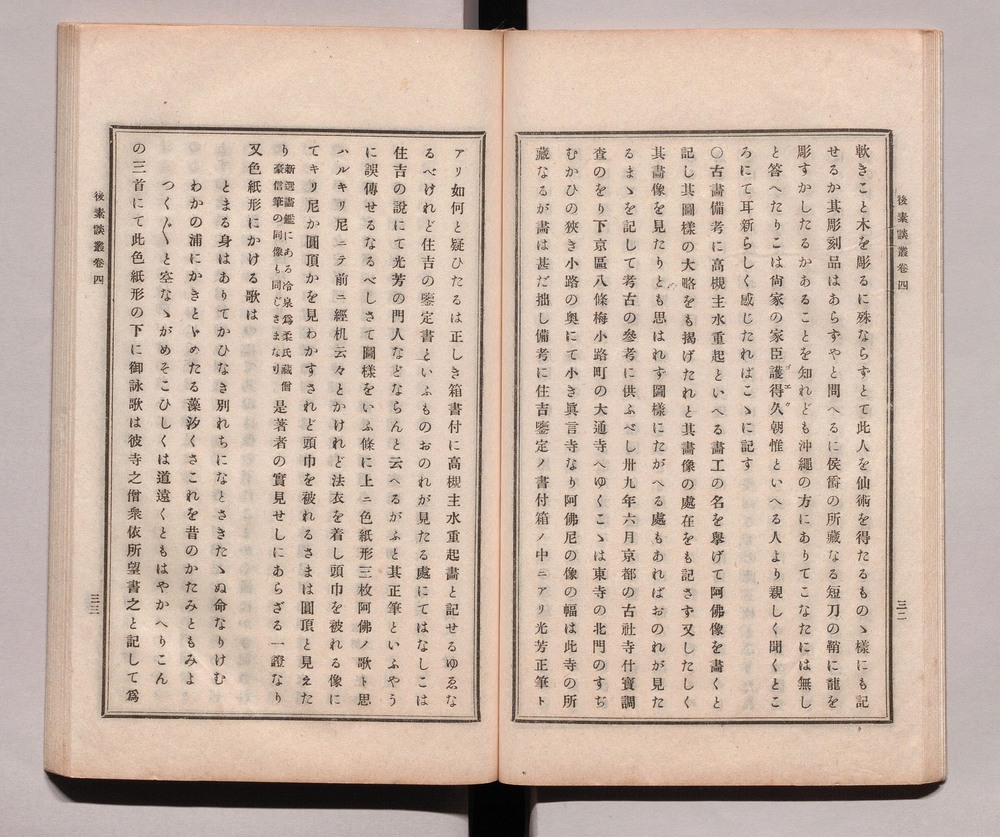 後素談叢卷四
三二
軟きこと木を彫るに殊ならずとて此人を仙術を得たるものゝ樣にも記
せるか其彫刻品はあらずやと問へるに侯爵の所藏なる短刀の鞘に龍を
彫すかしたるかあることを知れども沖繩の方にありてこなたには無し
と答へたりこは尙家の家臣護得久朝惟といへる人より親しく聞くとこ
ゴエク
ろにて耳新らしく感じたればこゝに記す
〇古畵備考に高槻主水重起といへる畵工の名を擧げて阿佛像を畵くと
記し其圖樣の大略をも揭げたれと其畵像の處在をも記さす又したしく
其畵像を見たりとも思はれす圖樣にたがへる處もあればおのれが見た
るまゝを記して考古の參考に供ふべし卅九年六月京都の古社寺什寶調
査のをり下京區八條梅小路町の大通寺へゆくこゝは東寺の北門のすぢ
むかひの狹き小路の奥にて小き眞言寺なり阿佛尼の像の幅は此寺の所
藏なるが畵は甚だ拙し備考に住吉鑒定ノ書付箱ノ中ニアリ光芳正筆ト
アリ如何と疑ひたるは正しき箱書付に高槻主水重起畵と記せるゆゑな
るべけれど住吉の鑒定書といふものおのれが見たる處にてはなしこは
住吉の說にて光芳の門人などならんと云へるがふと其正筆といふやう
に誤傳せるなるべしさて圖樣をいふ條に上ニ色紙形三枚阿佛ノ歌ト思
ハルキリ尼ニテ前ニ經机云々とかけれど法衣を着し頭巾を被れる像に
てキリ尼か圓頂かを見わかすされど頭巾を被れるさまは圓頂と見えた
り
新選畵鑑にある冷泉爲柔氏藏僧
豪信筆の同像も同じさまなり
是著者の實見せしにあらざる一證なり
又色紙形にかける歌は
とまる身はありてかひなき別れちになとさきたゝぬ命なりけむ
わかの浦にかきとゝめたる藻汐くさこれを昔のかたみともみよ
つく〲と空なゝがめそこひしくは道遠くともはやかへりこん
の三首にて此色紙形の下に御詠歌は彼寺之僧衆依所望書之と記して爲
後素談叢卷四
三三